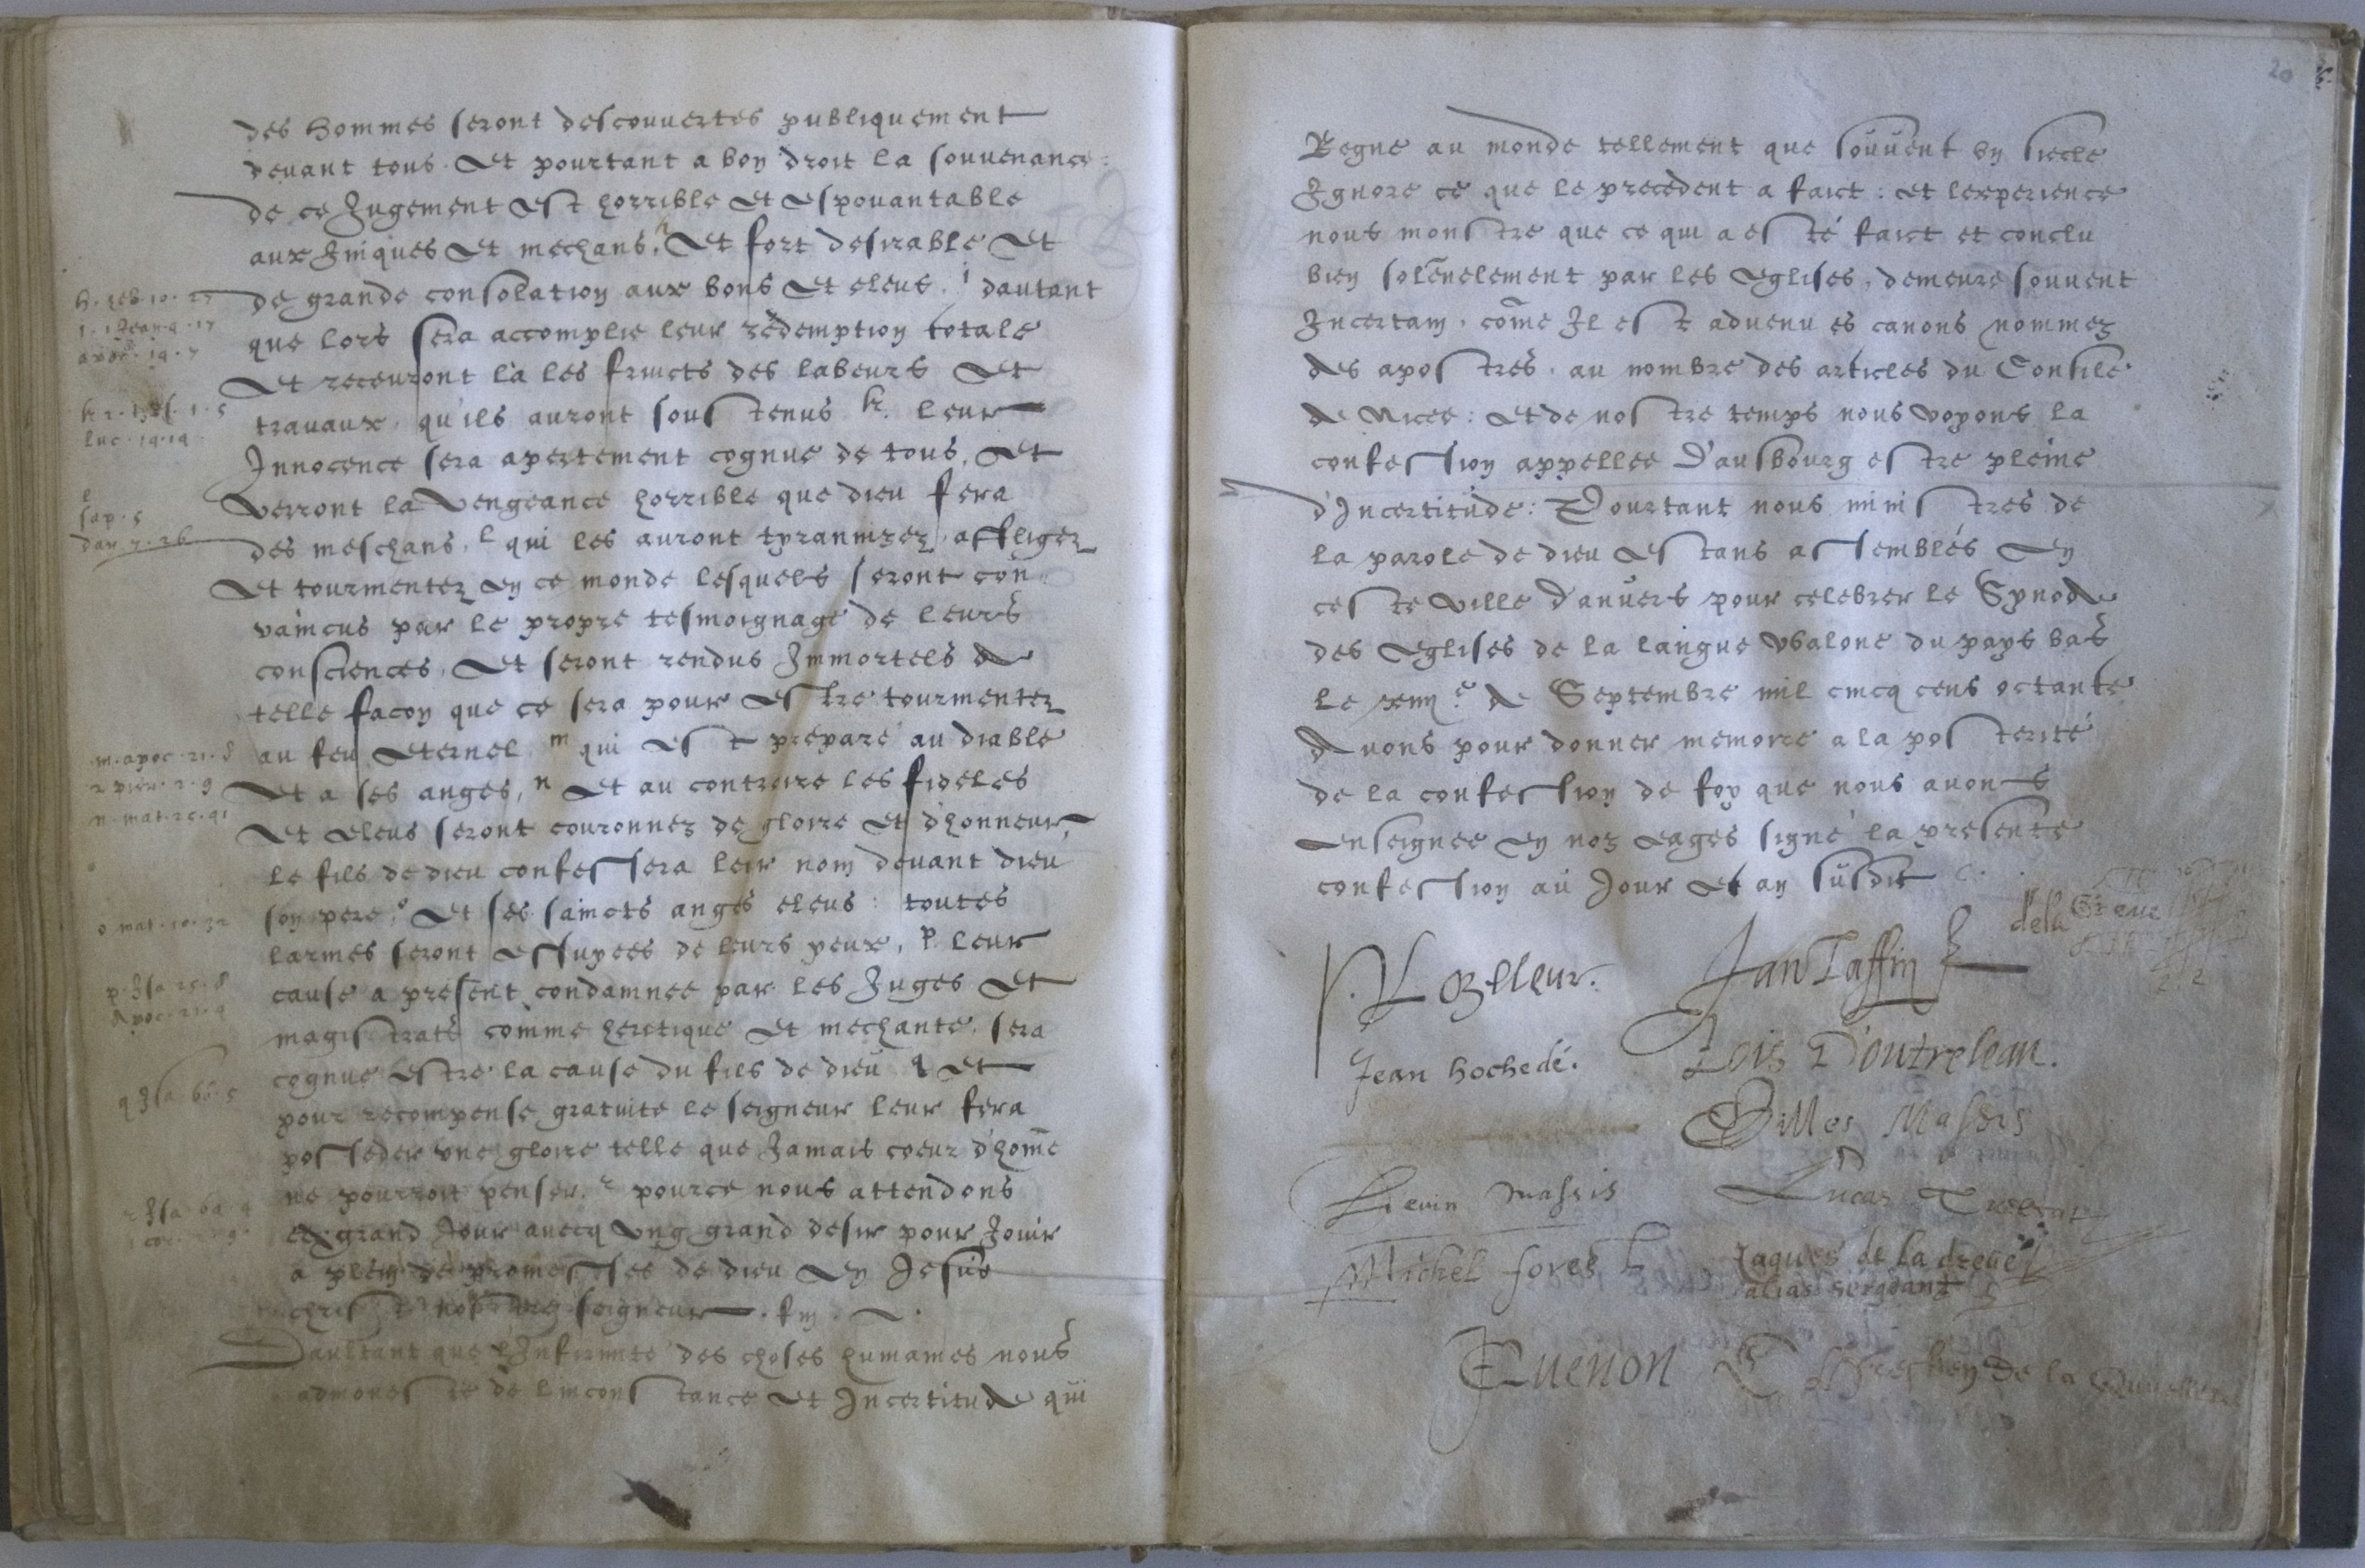 des hommes seront descouuertes publiquement
deuant tous. Et pourtant a bon droit la souuenance
de ce Jugement est horrible et espouantable
aux Iniques et mechans, h Et fort desirable et
de grande consolation aux bons et eleus. i dautant
que lors sera accomplie leur redemption totale
Et receuront là les fruicts des labeurs et
trauaux, qu'ils auront soustenus k. leur
Innocence sera apertement cognue de tous, et
verront la vengeance horrible que dieu fera
des meschans, l qui les auront tyrannizez, affligez
Et tourmentez en ce monde lesquels seront con
vaincus par le propre tesmoignage de leurs
consciences, Et seront rendus Immortels de
telle facon que ce sera pour estre tourmentez
au feu eternel m qui est preparé au diable
Et a ses anges, n Et au contraire les fideles
Et eleus seront couronnez de gloire et d'honneur,
le fils de dieu confessera leur nom deuant dieu
son pere, o Et ses saincts anges eleus: toutes
larmes seront essuyees de leurs yeux, p leur
cause a present condamnee par les Juges et
magistrats comme heretique et mechante, sera
cognue estre la cause du fils de dieu q et
pour recompense gratuite le seigneur leur fera
posseder vne gloire telle que Jamais coeur d'hom̃e
ne pourroit penser. r pource nous attendons
ce grand Jour auecq vng grand desir pour Jouir
a plein de promesses de dieu en Jesus
christ nostre seigneur. fin.
Daultant que l'Infirmité des choses humaines nous
admoneste de linconstance et Incertitude qui
h. heb. 10. 27
i. 1 Jean. 4. 17
apoc. 19. 7
luc. 14. 14
l
sap. 5
dan 7. 26
m. apoc. 21. 8
2 pier. 2. 9
n. mat. 25. 41
o mat. 10. 32
p. Isa. 25. 8
Apoc. 21. 4
q Isa. 66. 5
r Isa. 64. 4
20
Regne au monde tellement que souuent vn siecle
Ignore ce que le precedent a faict: et lexperience
nous monstre que ce qui a esté faict et conclu
bien solẽnelement par les eglises, demeure souuent
Incertain, com̃e Il est aduenu es canons nommez
des apostres, au nombre des articles du Consile
de Nicee: et de nostre temps nous voyons la
confession appellee D'ausbourg estre pleine
d'Incertitude: Pourtant nous ministres de
la parole de dieu estans assemblés en
ceste ville d'anuers pour celebrer le Synode
des eglises de la langue walone du pays bas
le xiiij e de Septembre mil cincq cens octante
Auons pour donner memoire a la posterité
de la confession de foy que nous auons
enseignee en noz eages signé la presente
confession au Jour et an susdit
dela Greue
Jan Taffin
Jean hochedé.
Lois D'outreleau.
Gilles Massis
Lieuin Massis
Lucas Trelcat
Michel forest
Jaques de la dreue
alias sergeant
Quenon
de la